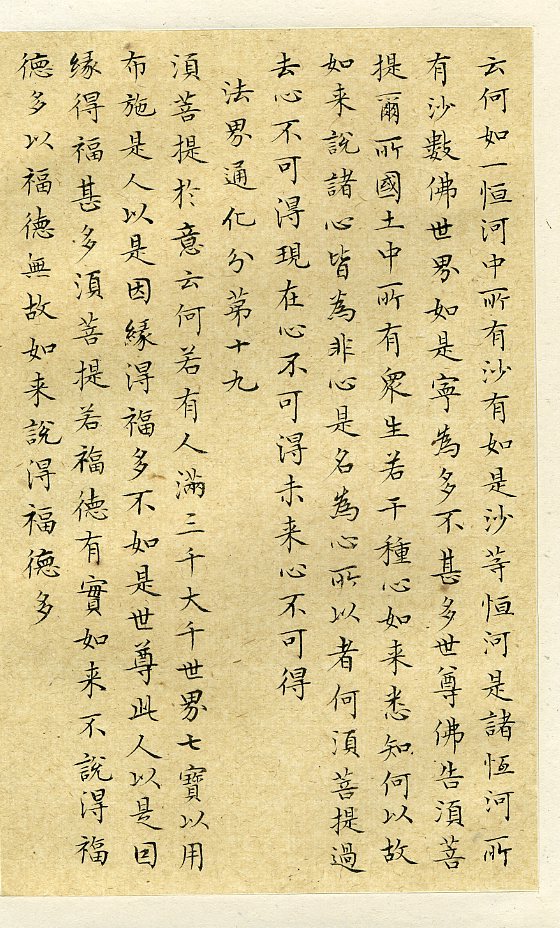 云何如一恒河中所有沙有如是沙等恒河是諸恒河所
有沙數佛世界如是寧為多不甚多世尊佛告須菩
提爾所國土中所有眾生若干種心如来悉知何以故
如来說諸心皆為非心是名為心所以者何須菩提過
去心不可得現在心不可得未来心不可得
法界通化分第十九
須菩提於意云何若有人滿三千大千世界七寶以用
布施是人以是因緣得福多不如是世尊此人以是因
緣得福甚多須菩提若福德有實如来不說得福
德多以福德無故如来說得福德多